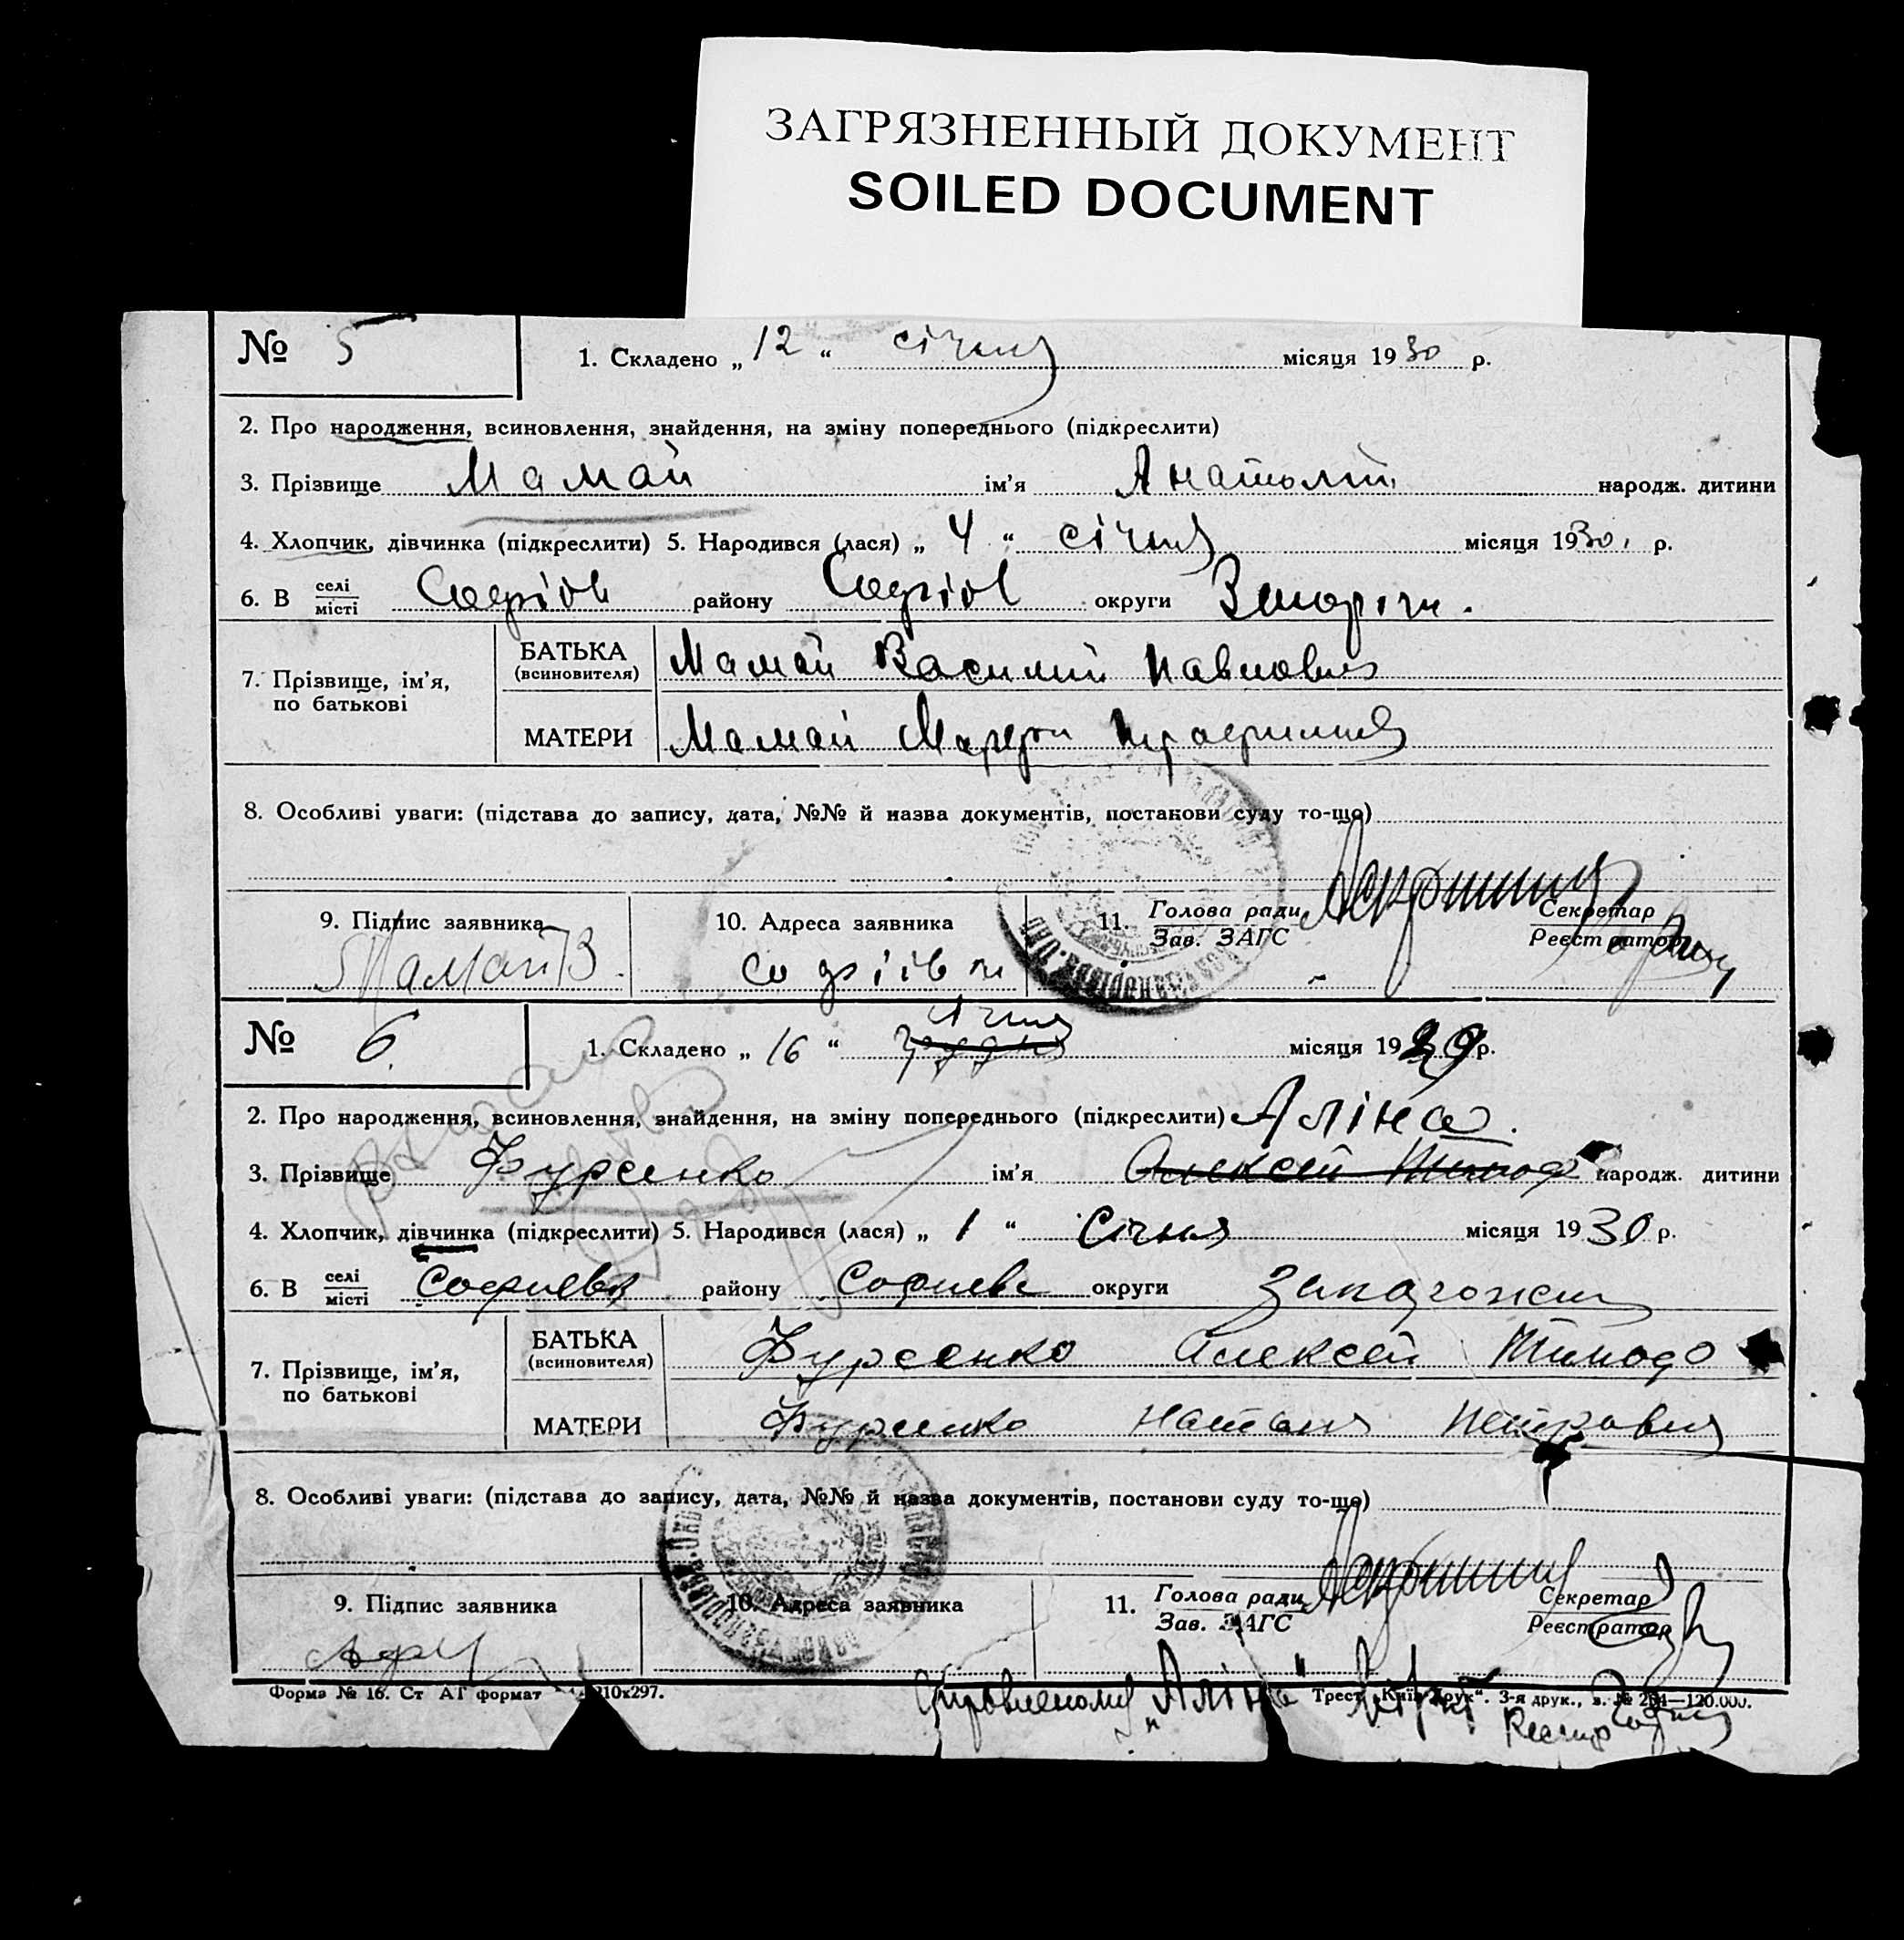 ЗАГРЯЗНЕННЫЙ ДОКУМЕНТ
SOILED DOCUMENT
№ 5 1. Складено „ 12 “ січня місяця 1930 р.
2. Про народження, всиновлення, знайдення, на зміну попереднього (підкреслити)
3. Прізвище Мамай ім'я Анатолій народж. дитини
4. Хлопчик, дівчинка (підкреслити) 5. Народився (лася) „ 4 “ січня місяця 1930 р.
6. В селі/місті Софіїв району Софіїв округи
7. Прізвище, ім'я, по батькові
БАТЬКА (всиновителя) Мамай Василий Павлович
МАТЕРИ Мамай
8. Особливі уваги: (підстава до запису, дата, №№ й назва документів, постанови суду то-що)
9. Підпис заявника 10. Адреса заявника 11. Голова ради / Зав. ЗАГС Секретар / Реєстратор
Мамай В.
№ 6. 1. Складено „ 16 “ січня місяця 19 р.
2. Про народження, всиновлення, знайдення, на зміну попереднього (підкреслити) Аліна.
3. Прізвище Фурсенко ім'я Алексей Тимоф народж. дитини
4. Хлопчик, дівчинка (підкреслити) 5. Народився (лася) „ 1 “ Січня місяця 1930 р.
6. В селі/місті Софиевка району Софиевк округи
7. Прізвище, ім'я, по батькові
БАТЬКА (всиновителя) Фурсенко Алексей Тимофо
МАТЕРИ Фурсенко Наталия Петровна
8. Особливі уваги: (підстава до запису, дата, №№ й назва документів, постанови суду то-що)
9. Підпис заявника 10. Адреса заявника 11. Голова ради / Зав. ЗАГС Секретар / Реєстратор
Форма № 16. Ст АГ формат 210х297. Трест „Київ-Друк“. 3-я друк., з. № 264—120.000.
„Аліна“